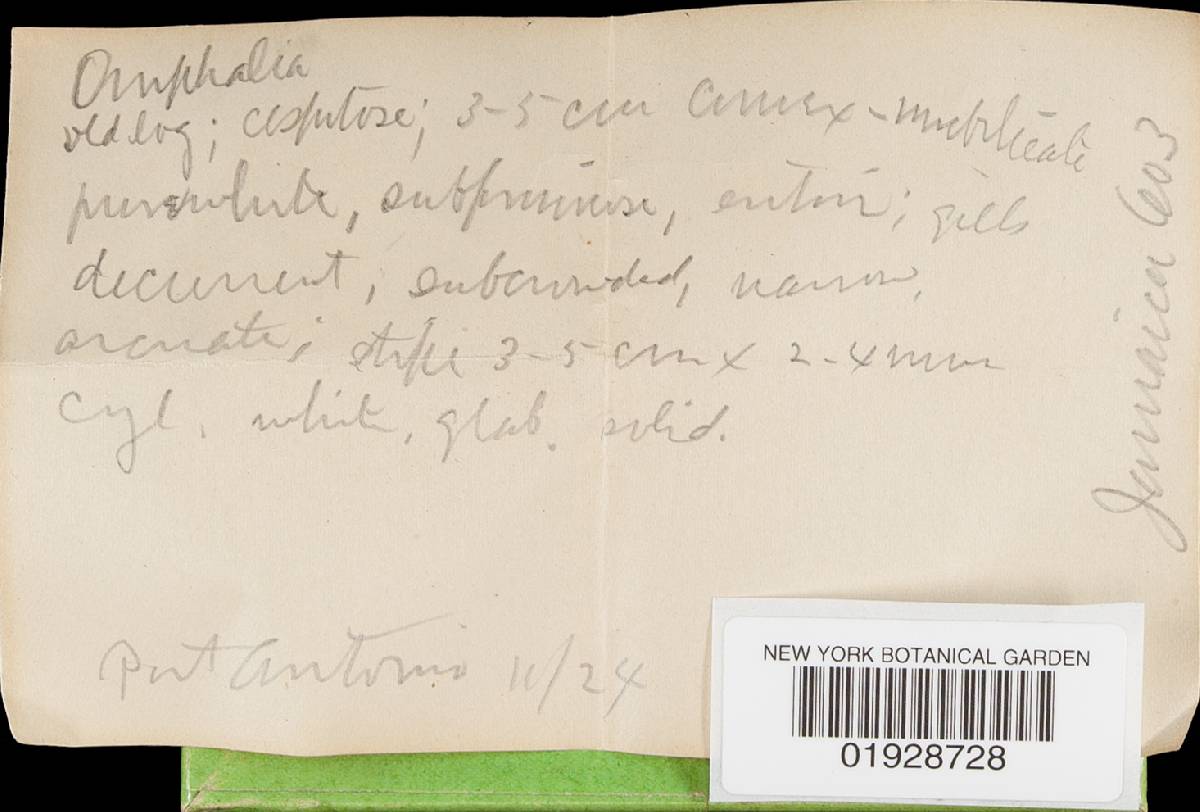 Omphalia
old log; cespitose; 3-5 cm convex-umbilicate
pure white, subpruinose, entire; gills
decurrent, subcrowded, narrow,
arcuate; stipe 3-5 cm x 2-4 mm
cyl. white, glab. solid.
Port Antonio 11/24
Jamaica 603
NEW YORK BOTANICAL GARDEN
01928728